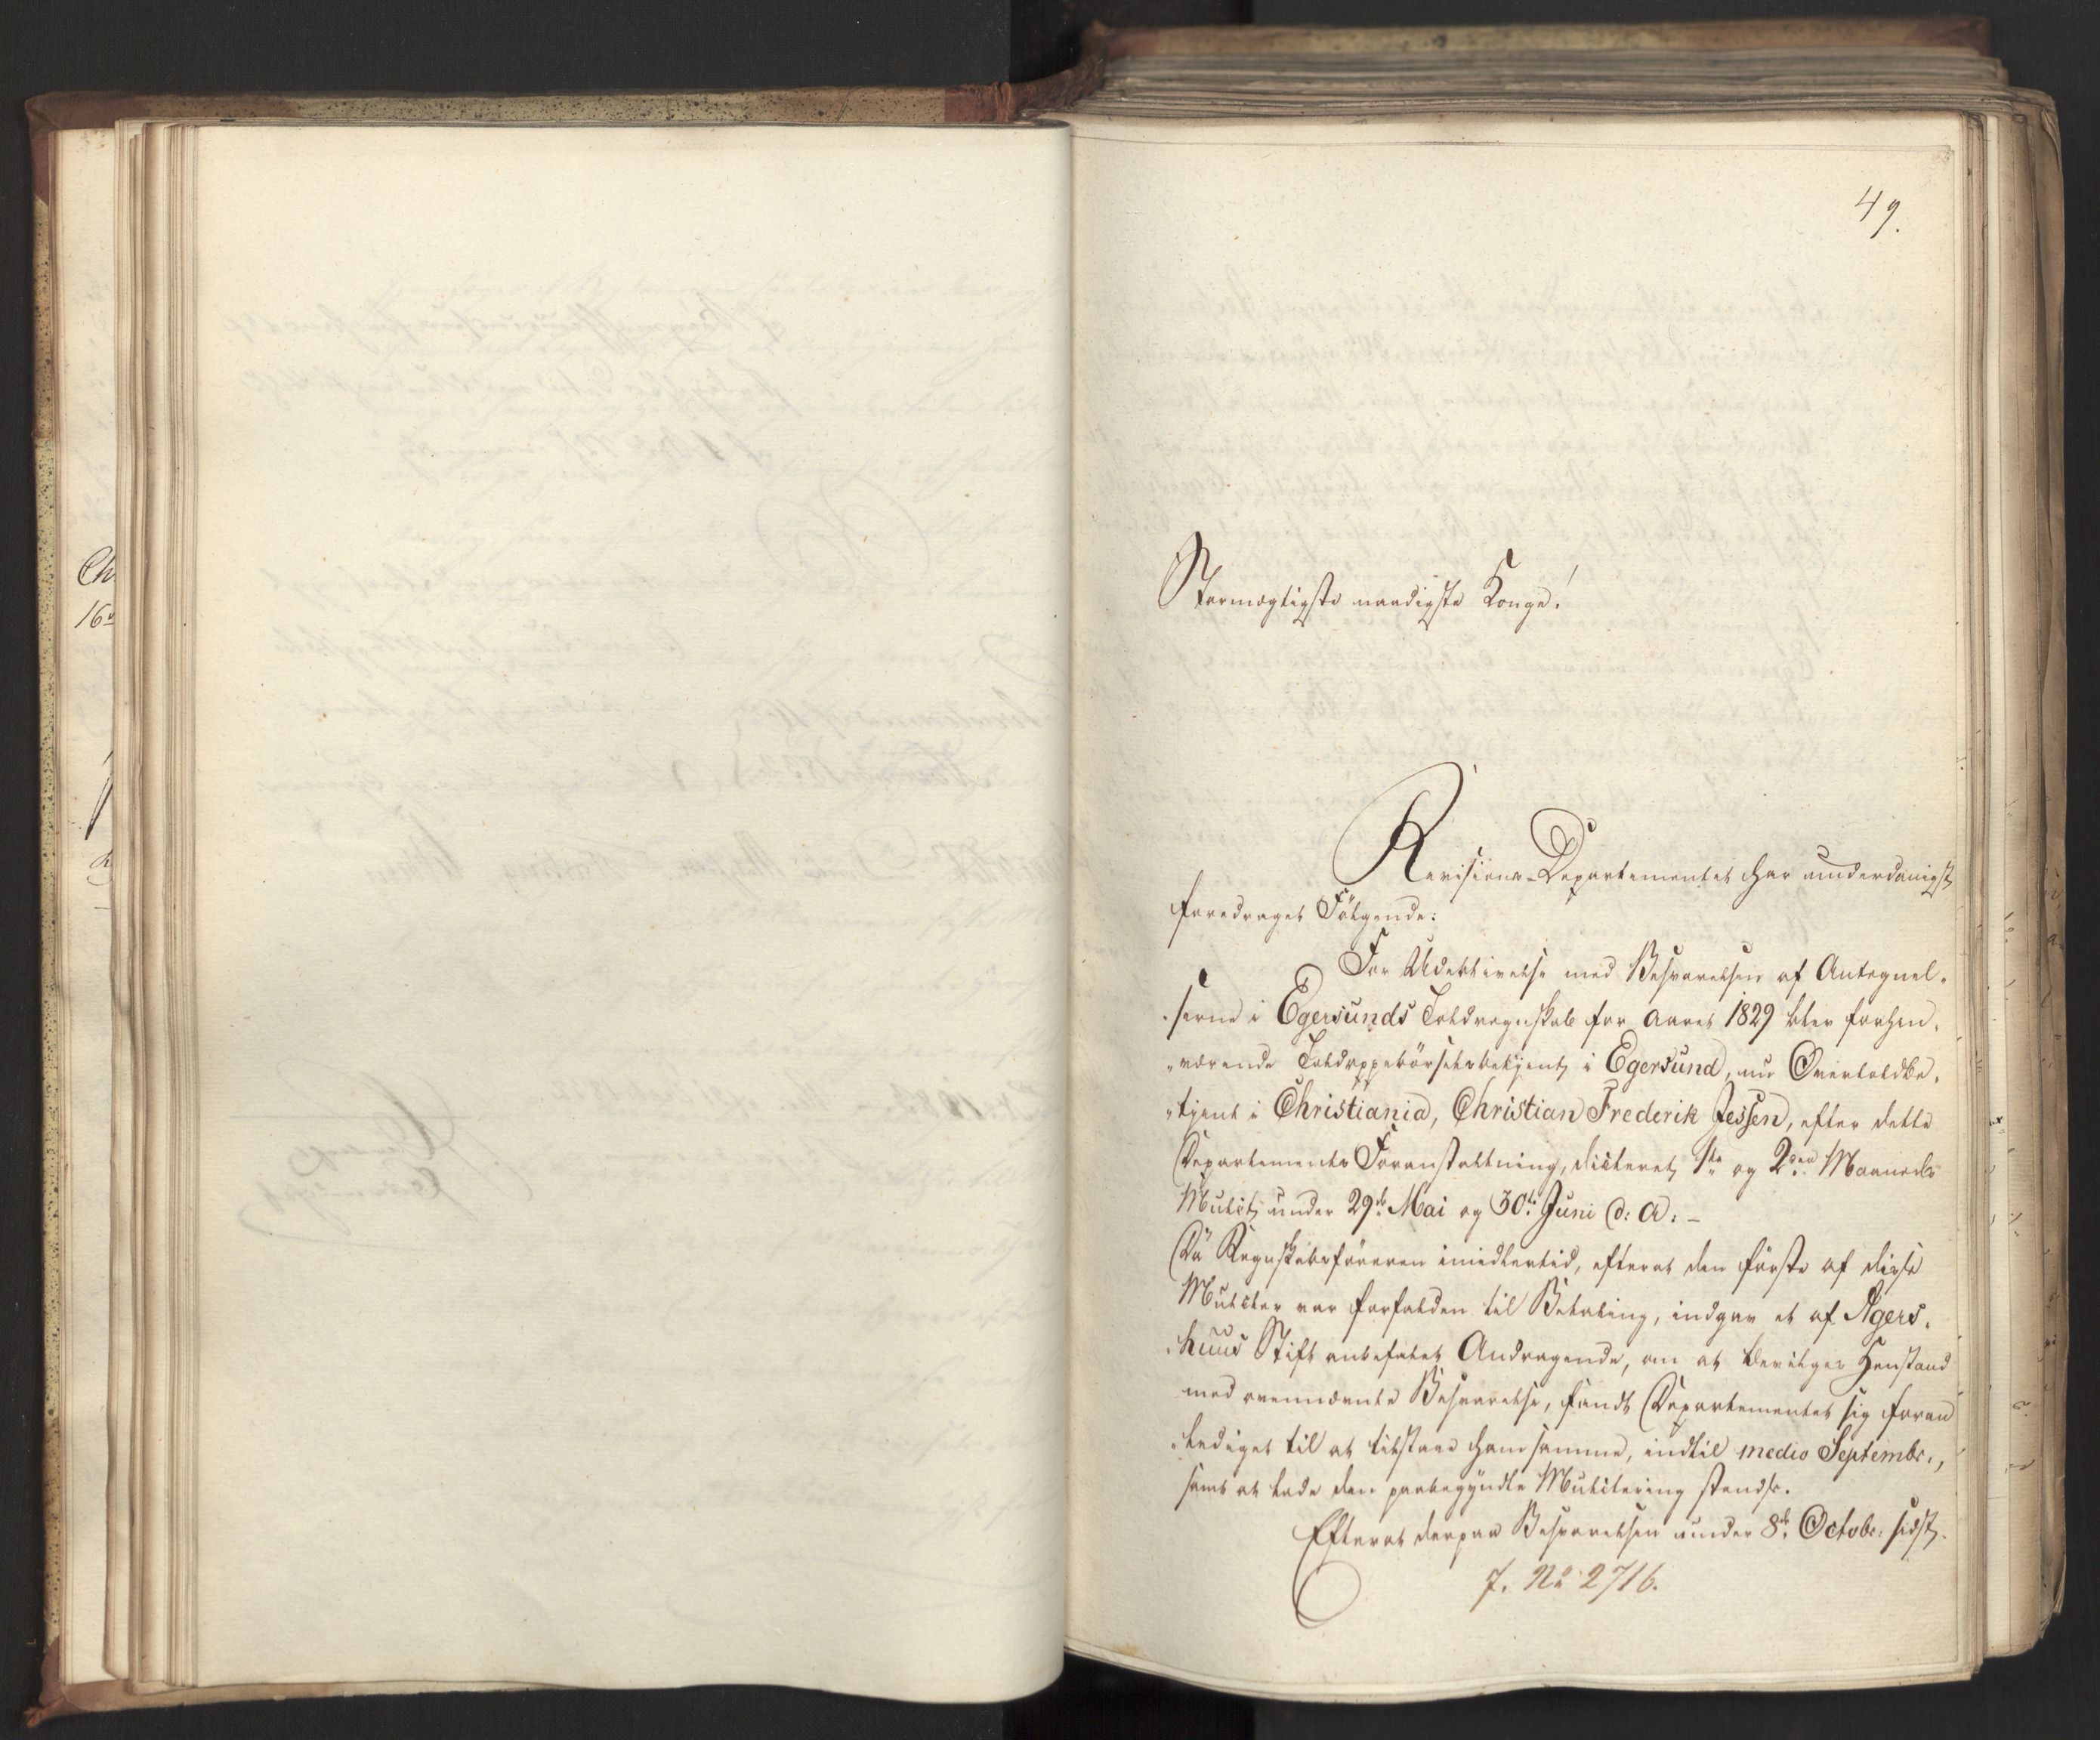 49.
Ch
16
Stormægtigste naadigste Konge!
Revisions-Departementet har underdanigst
foredraget Fölgende:
For Udeblivelse med Besvarelsen af Antegnel-
-serne i Egersunds Toldregnskab for Aaret 1829 blev forhen-
-værende Toldoppebörselsbetjent i Egersund, nu Overtoldbe-
-tjent i Christiania, Christian Frederik Jessen, efter dette
Departements Foranstaltning, dicteret 1ste og 2den Maaneds
Mulct under 29de Mai og 30te Juni d: A: -
Da Regnskabsföreren imidlertid, efterat den förste af disse
Mulcter var forfalden til Betaling, indgav et af Agers-
-huus Stift anbefalet Andragende, om at bevilges Henstand
med ovennævnte Besvarelse, fandt Departementet sig foran-
-lediget til at tilstaae ham samme, indtil medio Septembr.,
samt at lade den paabegyndte Mulctering standse.
Efterat derpaa Besvarelsen under 8de Octobr: sidst-
J. No 2716.